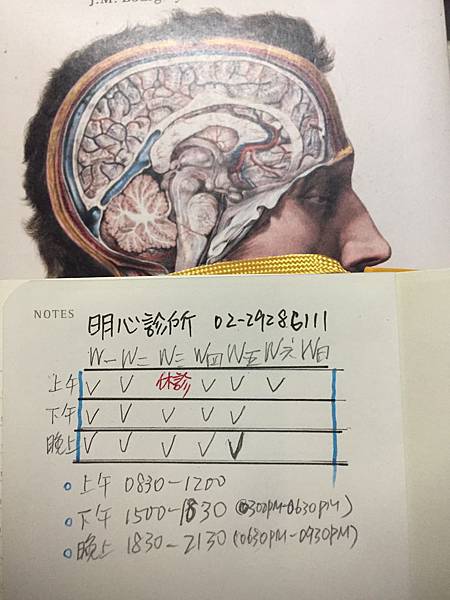 J.M. Bourgery
NOTES 明心診所 02-29286111
W一 W二 W三 W四 W五 W六 W日
上午 V V 休診 V V V
下午 V V V V V
晚上 V V V V V
上午 0830-1200
下午 1500-1830 (0300PM-0630PM)
晚上 1830-2130 (0630PM-0930PM)